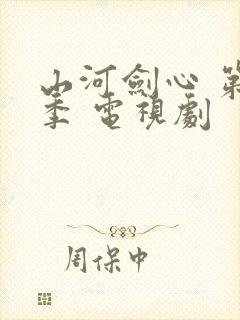 山河劍心 第
季 電視劇
周保中